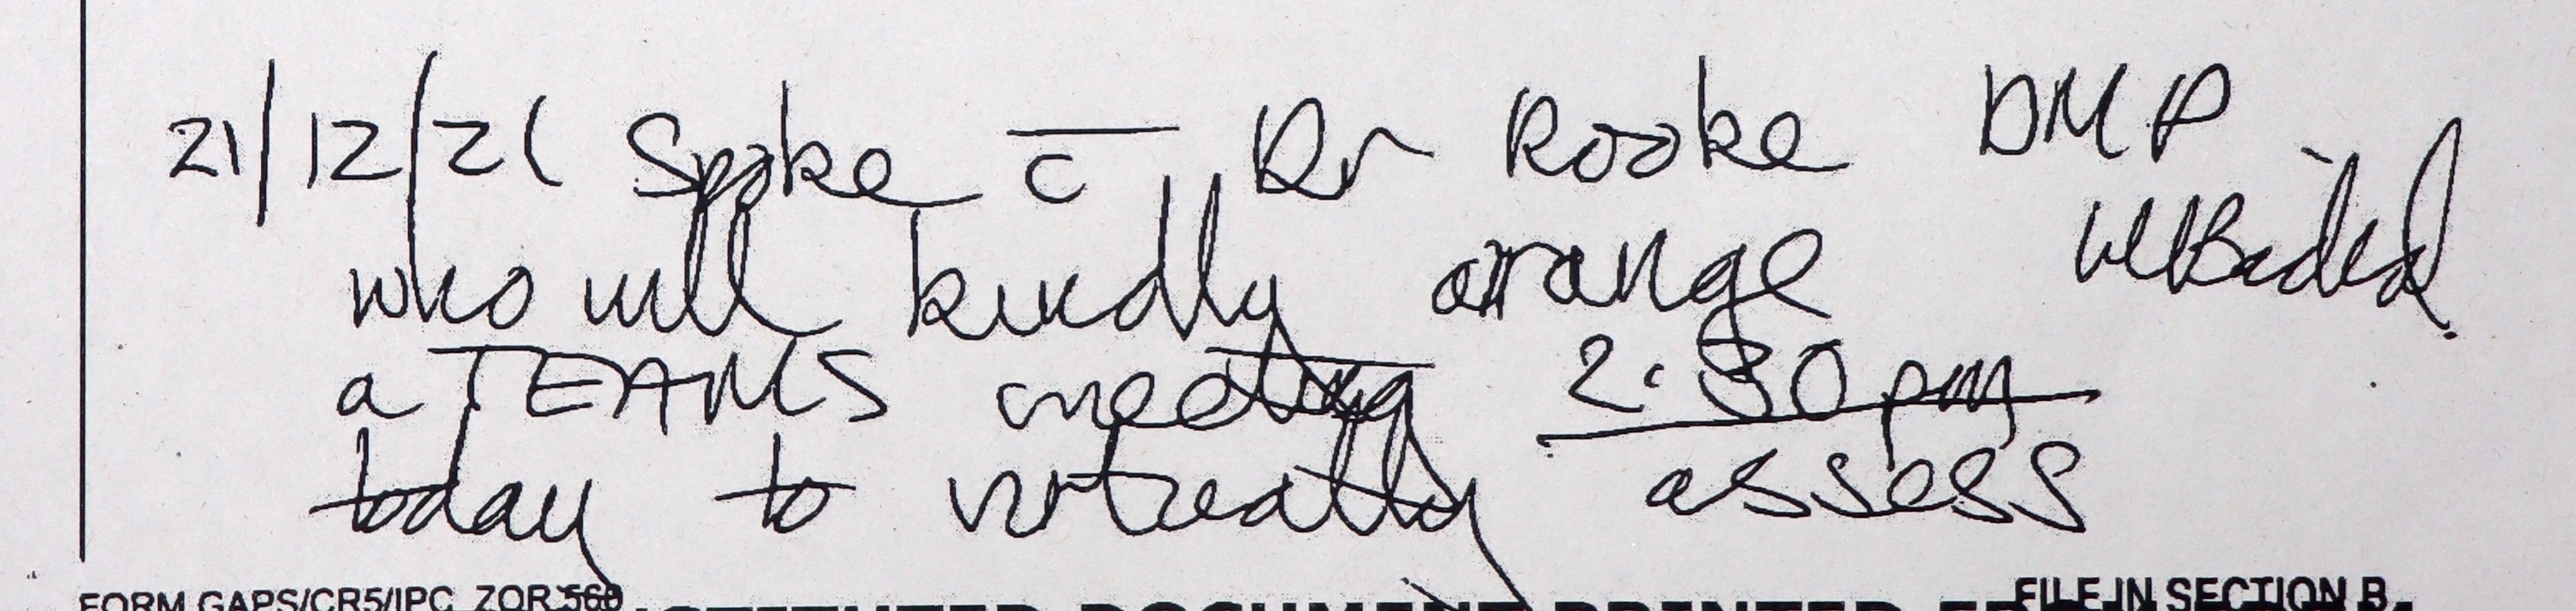 21/12/21 Spoke c̄ Dr Rooke DMP
who will kindly arrange
a TEAMS meeting 2:30pm
today to virtually assess
FORM GAPS/CR5/IPC ZOR 560 FILE IN SECTION B